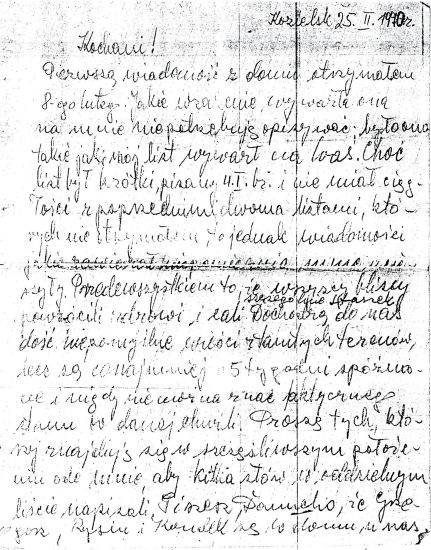 Kozielsk 25. II. 1940r.
Kochani!
Pierwszą wiadomość z domu otrzymałem
8-go lutego. Jakie wrażenie wywarła ona
na mnie nie potrzebuję opisywać; była ona
takie jak mój list wywarł na Was. Choć
list był krótki, pisany 4.I. br. i nie miał cią-
łości z poprzednimi dwoma listami, któ-
rych nie otrzymałem to jednak wiadomości
szyły. Przedewszystkiem to, że wszyscy bliscy
szczególnie
powrócili zdrowi i cali. Dochodzą do nas
dość niepomyślne wieści z tamtych terenów,
lecz są conajmniej o 5 tygodni spóźnio-
ne i nigdy nie można znać faktycznego
stanu w danej chwili. Proszę tych, któ-
rzy znajdują się w szczęśliwszym położe-
niu ode mnie aby kilka słów w oddzielnym
liście napisali. Piszesz, że
i są w domu u nas,